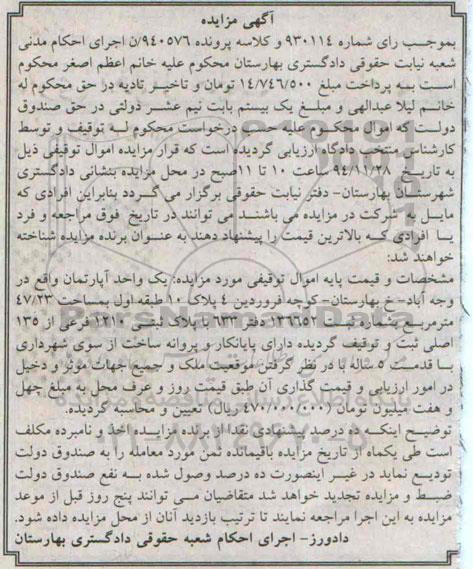 آگهی مزایده
بموجب رای شماره ۹۳۰۱۱۴ و کلاسه پرونده ۹۴۰۵۷۶/ن اجرای احکام مدنی
شعبه نیابت حقوقی دادگستری بهارستان محکوم علیه خانم اعظم اصغر محکوم
است به پرداخت مبلغ ۱۴/۷۴۶/۵۰۰ تومان و تاخیر تادیه در حق محکوم له
خانم لیلا عبدالهی و مبلغ یک بیستم بابت نیم عشر دولتی در حق صندوق
دولت که اموال محکوم علیه حسب درخواست محکوم له توقیف و توسط
کارشناس منتخب دادگاه ارزیابی گردیده است که قرار مزایده اموال توقیفی ذیل
به تاریخ ۹۴/۱۱/۲۸ ساعت ۱۰ تا ۱۱صبح در محل مزایده بنشانی دادگستری
شهرستان بهارستان- دفتر نیابت حقوقی برگزار می گردد بنابراین افرادی که
مایل به شرکت در مزایده می باشند می توانند در تاریخ فوق مراجعه و فرد
یا افرادی که بالاترین قیمت را پیشنهاد دهند به عنوان برنده مزایده شناخته
خواهند شد:
مشخصات و قیمت پایه اموال توقیفی مورد مزایده: یک واحد آپارتمان واقع در
وجه آباد-خ بهارستان-کوچه فروردین ۴ پلاک ۱۰ طبقه اول بمساحت ۴۷/۳۳
مترمربع بشماره ثبت ۱۲۶۵۳ دفتر ۶۳۳ با پلاک ثبتی ۱۲۱۲۰ فرعی از ۱۳۵
اصلی ثبت و توقیف گردیده دارای پایانکار و پروانه ساخت از سوی شهرداری
با قدمت ۵ ساله با در نظر گرفتن موقعیت ملک و جمیع جهات موثر و دخیل
در امور ارزیابی و قیمت گذاری آن طبق قیمت روز و عرف محل به مبلغ چهل
و هفت میلیون تومان (۴۷۰/۰۰۰/۰۰۰ ریال) تعیین و محاسبه گردیده.
توضیح اینکه ده درصد پیشنهادی نقدا از برنده مزایده اخذ و نامبرده مکلف
است طی یکماه از تاریخ مزایده باقیمانده ثمن مورد معامله را به صندوق دولت
تودیع نماید در غیر اینصورت ده درصد وصول شده به نفع صندوق دولت
ضبط و مزایده تجدید خواهد شد متقاضیان می توانند پنج روز قبل از موعد
مزایده به این اجرا مراجعه نمایند تا ترتیب بازدید آنان از محل مزایده داده شود.
دادورز- اجرای احکام شعبه حقوقی دادگستری بهارستان
ParsNamadData
۰۲۱-۸۸۳۴۹۶۷۰-۵